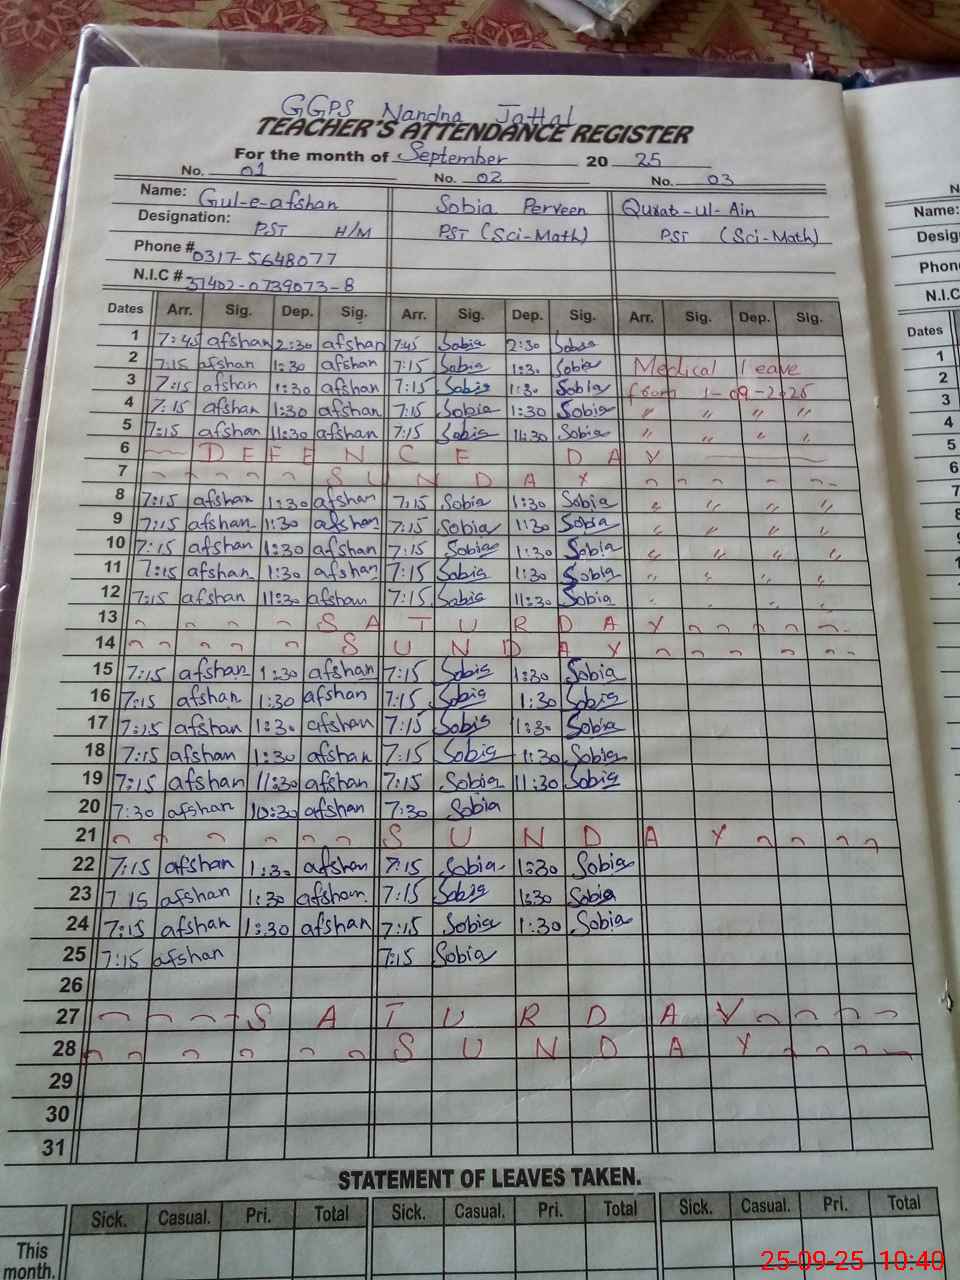 GGPS Nandna Jattal
TEACHER'S ATTENDANCE REGISTER
For the month of September 20 25
No. 01 No. 02 No. 03
Name: Gul-e-afshan Sobia Perveen Qurat-ul-Ain
Designation: PST H/M PST (Sci-Math) PST (Sci-Math)
Phone # 0317-5648077
N.I.C # 37402-0739073-8
Dates Arr. Sig. Dep. Sig. Arr. Sig. Dep. Sig. Arr. Sig. Dep. Sig.
1 7:45 afshan 2:30 afshan 7:45 Sobia 2:30 Sobia
2 7:15 afshan 1:30 afshan 7:15 Sobia 1:30 Sobia Medical leave
3 7:15 afshan 1:30 afshan 7:15 Sobia 1:30 Sobia from 1-09-2025
4 7:15 afshan 1:30 afshan 7:15 Sobia 1:30 Sobia " " " "
5 7:15 afshan 11:30 afshan 7:15 Sobia 11:30 Sobia " " " "
6 DEFENCE DAY
7 SUNDAY
8 7:15 afshan 1:30 afshan 7:15 Sobia 1:30 Sobia " " " "
9 7:15 afshan 1:30 afshan 7:15 Sobia 1:30 Sobia " " " "
10 7:15 afshan 1:30 afshan 7:15 Sobia 1:30 Sobia " " " "
11 7:15 afshan 1:30 afshan 7:15 Sobia 1:30 Sobia " " " "
12 7:15 afshan 11:30 afshan 7:15 Sobia 11:30 Sobia " " " "
13 SATURDAY
14 SUNDAY
15 7:15 afshan 1:30 afshan 7:15 Sobia 1:30 Sobia
16 7:15 afshan 1:30 afshan 7:15 Sobia 1:30 Sobia
17 7:15 afshan 1:30 afshan 7:15 Sobia 1:30 Sobia
18 7:15 afshan 1:30 afshan 7:15 Sobia 1:30 Sobia
19 7:15 afshan 11:30 afshan 7:15 Sobia 11:30 Sobia
20 7:30 afshan 10:30 afshan 7:30 Sobia
21 SUNDAY
22 7:15 afshan 1:30 afshan 7:15 Sobia 1:30 Sobia
23 7 15 afshan 1:30 afshan 7:15 Sobia 1:30 Sobia
24 7:15 afshan 1:30 afshan 7:15 Sobia 1:30 Sobia
25 7:15 afshan 7:15 Sobia
26
27 SATURDAY
28 SUNDAY
29
30
31
STATEMENT OF LEAVES TAKEN.
Sick. Casual. Pri. Total Sick. Casual. Pri. Total Sick. Casual. Pri. Total
This month.
25-09-25 10:40
Name:
Phon
N.I.C
Dates
1
2
3
4
5
6
7
8
9